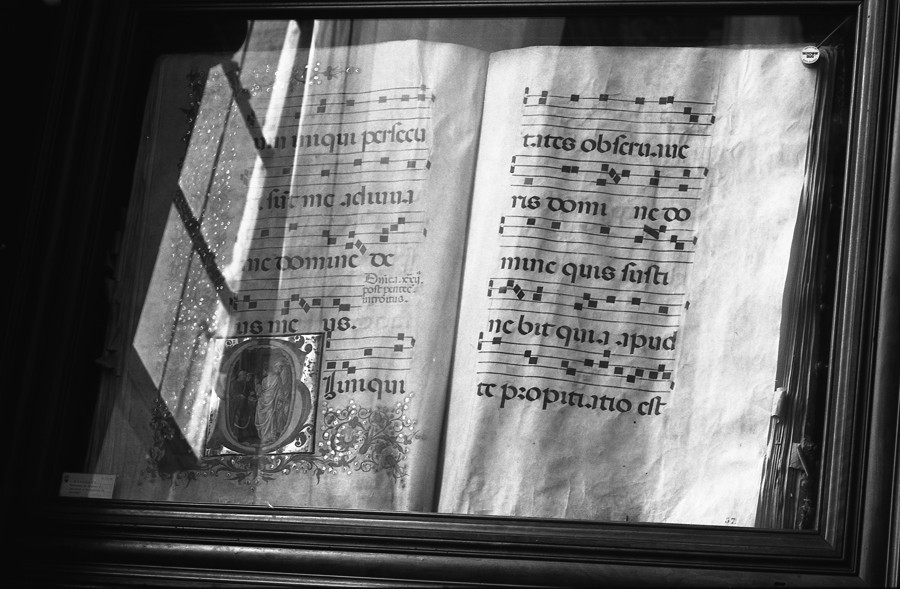 iniqui persecu
sūt me adiuua
me domine de
Dnica. xxij.
post pentec̄.
introitus.
us me us.
Si iniqui
tates obseruaue
ris domi ne do
mine quis susti
ne bit quia apud
te propitiatio est
57